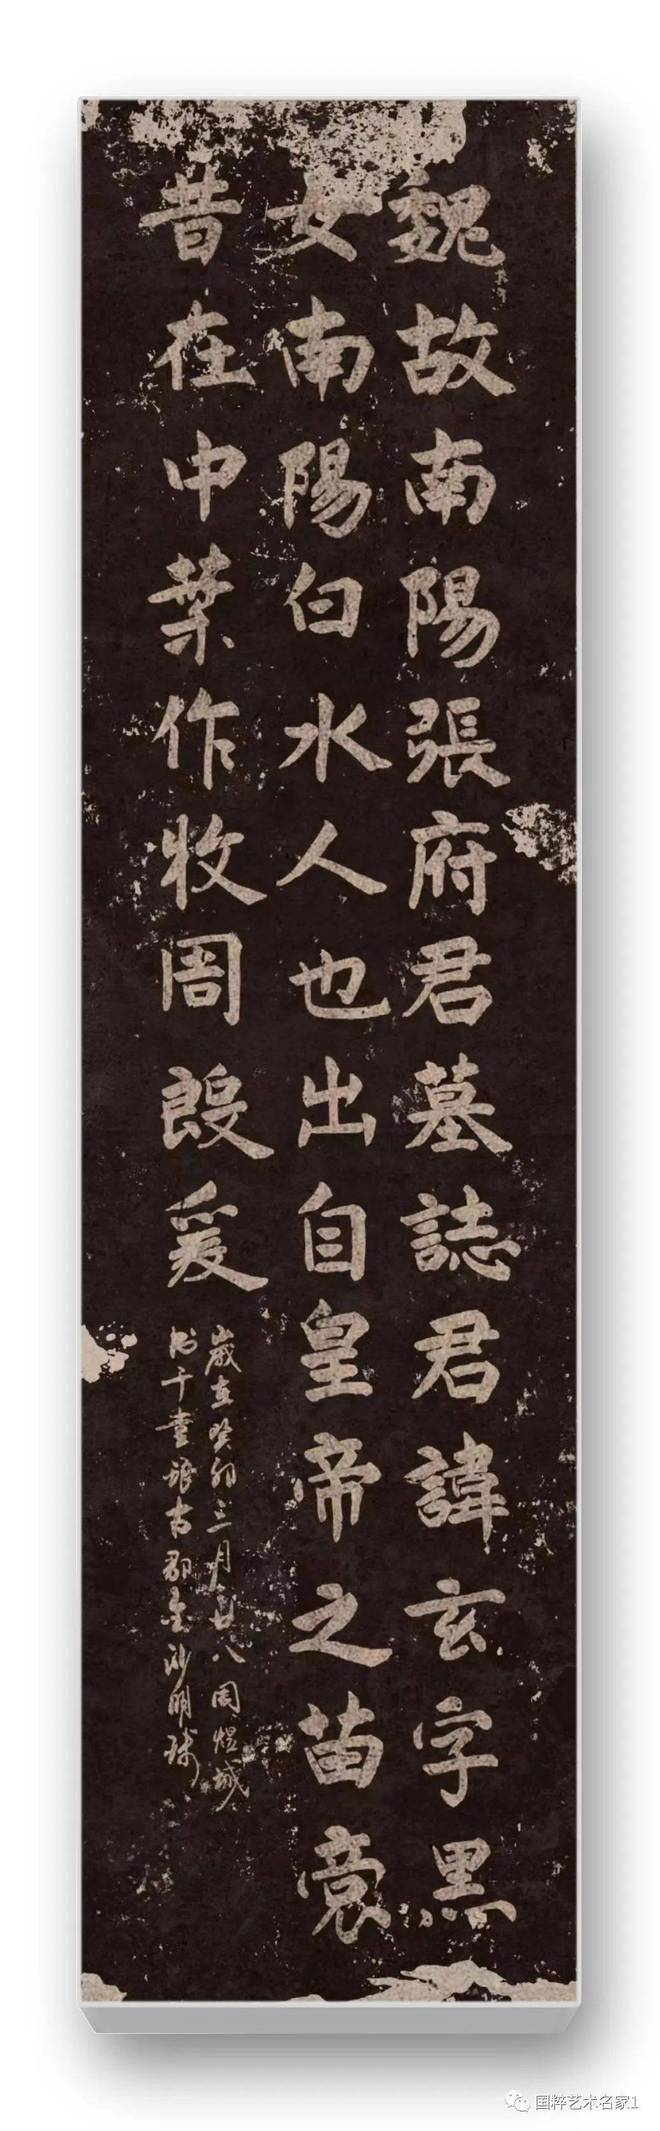 魏故南陽張府君墓誌君諱玄字黑
女南陽白水人也出自皇帝之苗裔
昔在中葉作牧周殷爰
歲在癸卯三月廿八周煜城
书于堂琅古郡金沙明珠
国粹艺术名家1